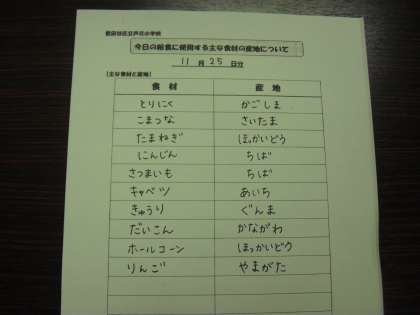 世田谷区立芦花小学校
今日の給食に使用する主な食材の産地について
11月25日分
【主な食材と産地】
食材 産地
とりにく かごしま
こまつな さいたま
たまねぎ ほっかいどう
にんじん ちば
さつまいも ちば
キャベツ あいち
きゅうり ぐんま
だいこん かながわ
ホールコーン ほっかいどう
りんご やまがた